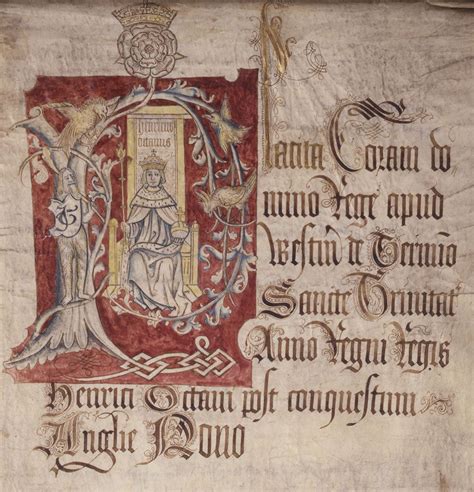 henricus
octauus
Placita Coram do
mino Rege apud
westm de Termino
Sancte Trinitat
Anno Regni Regis
Henrici Octaui post conquestum
Anglie Nono